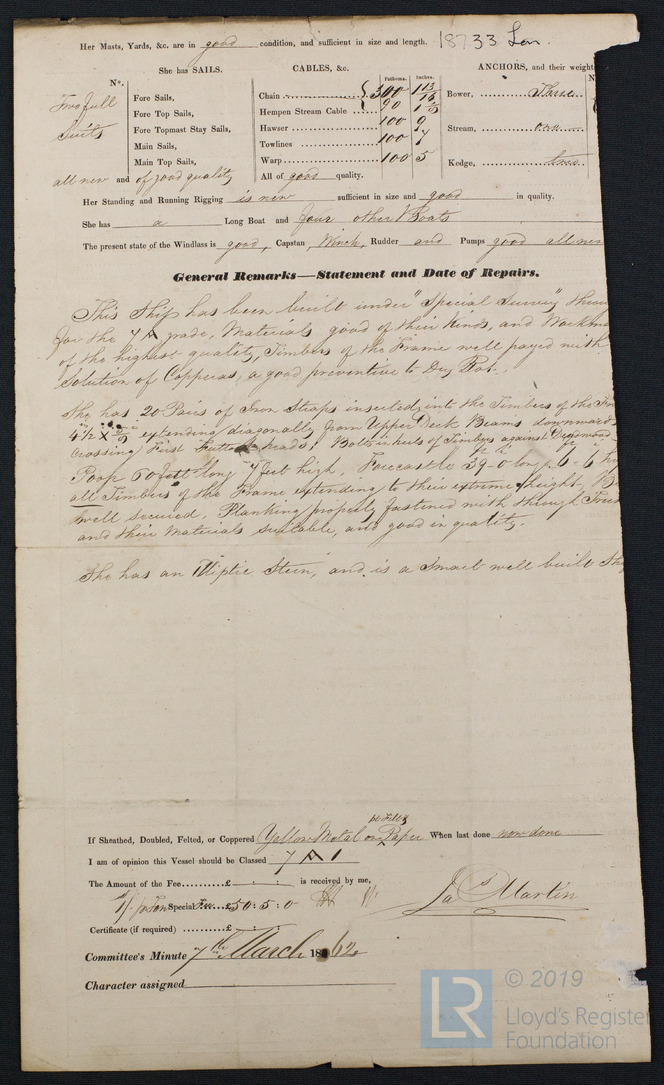 Her Masts, Yards, &c. are in good condition, and sufficient in size and length. 18733 Lon.
She has SAILS.
CABLES, &c.
ANCHORS, and their weight
N°.
Fathoms.
Inches.
Two full
Suits
Fore Sails,
Fore Top Sails,
Fore Topmast Stay Sails,
Main Sails,
Main Top Sails,
all new and of good quality
Chain 300 1 13/16
Hempen Stream Cable 90
Hawser 100 9
Towlines 100 7
Warp 100 5
All of good quality.
Bower, Three
Stream, one
Kedge, two
Her Standing and Running Rigging is new sufficient in size and good in quality.
She has a Long Boat and four other Boats
The present state of the Windlass is good, Capstan, Winch, Rudder and Pumps good all new
General Remarks—Statement and Date of Repairs.
This Ship has been built under "Special Survey"
for the 7 A grade, Materials good of their Kinds, and
of the highest quality, Timbers of the Frame well payed with
Solution of Copperas, a good preventive to Dry Rot.
She has 20 Pairs of Iron Straps inserted into the Timbers of the
4½ × extending diagonally from Upper Deck Beams downwards
crossing First Futtock heads; Bolts in heels of Timbers against
Poop 60 feet long 7 feet high, Forecastle 39-0 long 6-6
all Timbers of the Frame extending to their extreme height,
well secured. Planking properly fastened with through
and their Materials suitable, and good in quality.
She has an Eliptic Stern, and is a Smart well built
If Sheathed, Doubled, Felted, or Coppered Yellow Metal on Paper When last done now done
I am of opinion this Vessel should be Classed 7 A 1
The Amount of the Fee £ : : is received by me,
Special Fee £50:5:0
Ja Martin
Certificate (if required) £ :
Committee's Minute 7th March 1862
Character assigned
© 2019
LR
Lloyd's Register
Foundation